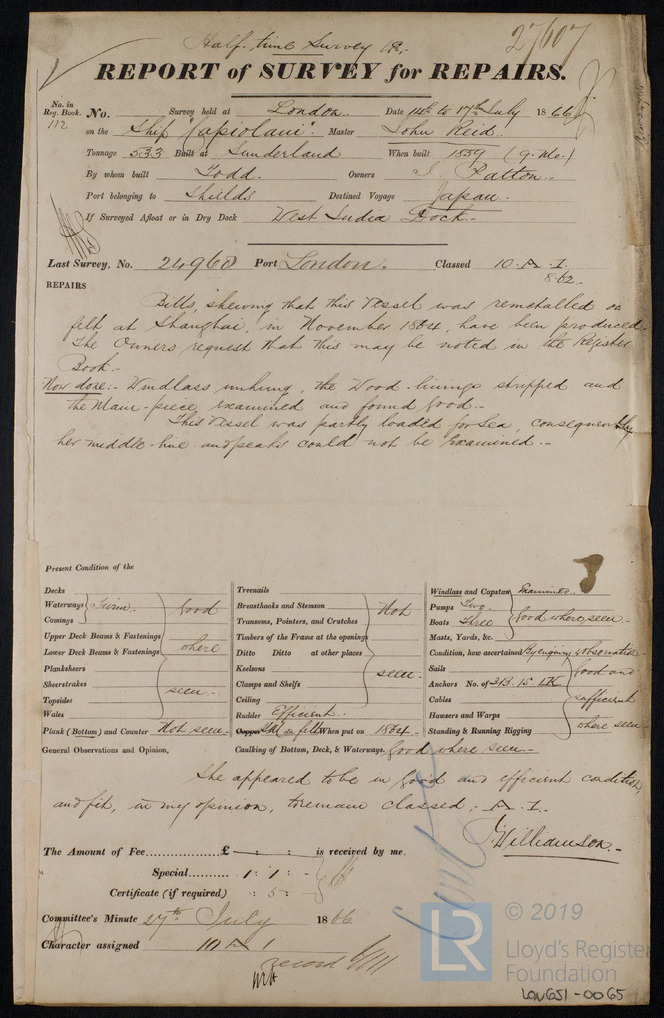 Half-time Survey
27607
REPORT of SURVEY for REPAIRS.
No. in Reg. Book. 112
No. Survey held at London. Date 14th to 17th July 1866
on the Ship "Kapiolani". Master John Reid.
Tonnage 533 Built at Sunderland When built 1859 (9. Mo.)
By whom built Todd. Owners J. Patton.
Port belonging to Shields Destined Voyage Japan.
If Surveyed Afloat or in Dry Dock West India Dock.
Last Survey, No. 24960 Port London. Classed 10 A 1.
8.62.
REPAIRS
Bills, shewing that this Vessel was remetalled on
felt at Shanghai, in November 1864, have been produced.
The Owners request that this may be noted in the Register
Book.
Now done:- Windlass unhung, the Wood-linings stripped and
the Main-piece, examined and found good.-
This Vessel was partly loaded for Sea, consequently
her middle-line and peaks could not be Examined.-
Present Condition of the
Decks
Waterways Firm.
Comings
good
Upper Deck Beams & Fastenings
Lower Deck Beams & Fastenings
where
Planksheers
Sheerstrakes
seen.
Topsides
Wales
Plank (Bottom) and Counter Not seen.
General Observations and Opinion,
Treenails
Breasthooks and Stemson
Not
Transoms, Pointers, and Crutches
Timbers of the Frame at the openings
Ditto Ditto at other places
Keelsons
seen.
Clamps and Shelfs
Ceiling
Rudder Efficient.
Copper YM on felt When put on 1864.
Caulking of Bottom, Deck, & Waterways. Good where seen.
Windlass and Capstan Examined.
Pumps Two
Boats Three
good where seen.
Masts, Yards, &c.
Condition, how ascertained By enquiry & observation
Sails
Good and
Anchors No. of 3B. 1S. 1K
Cables
sufficient
Hawsers and Warps
where seen
Standing & Running Rigging
She appeared to be in good and efficient condition,
and fit, in my opinion, to remain classed, A. 1.
J. Williamson.
The Amount of Fee £ : : is received by me.
Special 1 : 1 :
Certificate (if required) : 5 :
Committee's Minute 27th July 1866
Character assigned 10 A 1
record
LR
© 2019
Lloyd's Register
Foundation
LON651-0065